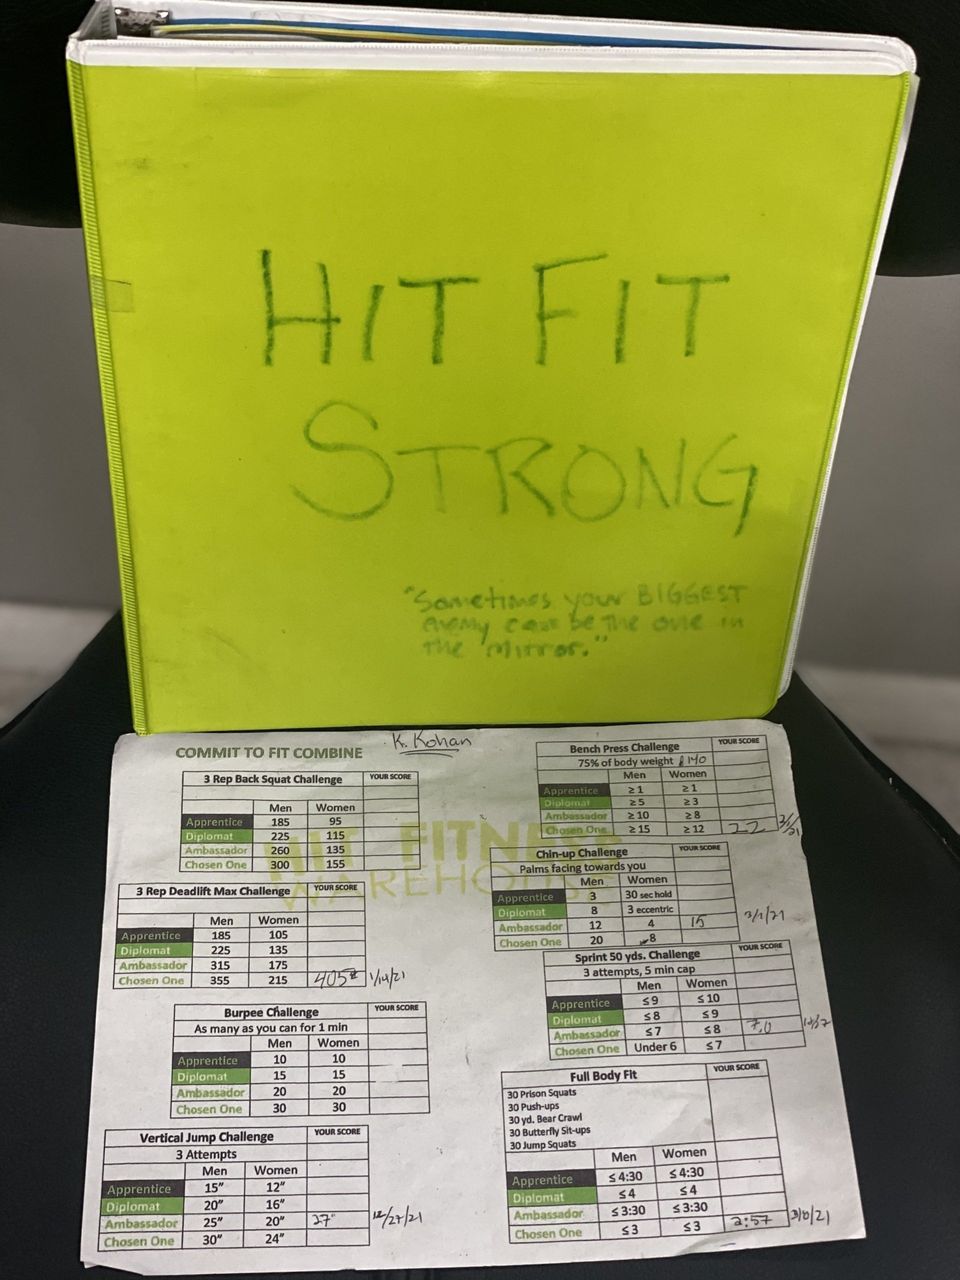 HIT FIT
STRONG
"Sometimes your BIGGEST
enemy can be the one in
the mirror."
COMMIT TO FIT COMBINE
K. Kohan
3 Rep Back Squat Challenge YOUR SCORE
Men Women
Apprentice 185 95
Diplomat 225 115
Ambassador 260 135
Chosen One 300 155
3 Rep Deadlift Max Challenge YOUR SCORE
Men Women
Apprentice 185 105
Diplomat 225 135
Ambassador 315 175
Chosen One 355 215 405# 1/14/21
Burpee Challenge YOUR SCORE
As many as you can for 1 min
Men Women
Apprentice 10 10
Diplomat 15 15
Ambassador 20 20
Chosen One 30 30
Vertical Jump Challenge YOUR SCORE
3 Attempts
Men Women
Apprentice 15" 12"
Diplomat 20" 16"
Ambassador 25" 20" 27" 12/27/21
Chosen One 30" 24"
Bench Press Challenge YOUR SCORE
75% of body weight 140
Men Women
Apprentice ≥1 ≥1
Diplomat ≥5 ≥3
Ambassador ≥10 ≥8
Chosen One ≥15 ≥12 22
Chin-up Challenge YOUR SCORE
Palms facing towards you
Men Women
Apprentice 3 30 sec hold
Diplomat 8 3 eccentric
Ambassador 12 4 15 3/1/21
Chosen One 20 8
Sprint 50 yds. Challenge YOUR SCORE
3 attempts, 5 min cap
Men Women
Apprentice ≤9 ≤10
Diplomat ≤8 ≤9
Ambassador ≤7 ≤8 7.0
Chosen One Under 6 ≤7
Full Body Fit YOUR SCORE
30 Prison Squats
30 Push-ups
30 yd. Bear Crawl
30 Butterfly Sit-ups
30 Jump Squats
Men Women
Apprentice ≤4:30 ≤4:30
Diplomat ≤4 ≤4
Ambassador ≤3:30 ≤3:30
Chosen One ≤3 ≤3 2:57
HIT FITNESS
WAREHOUSE